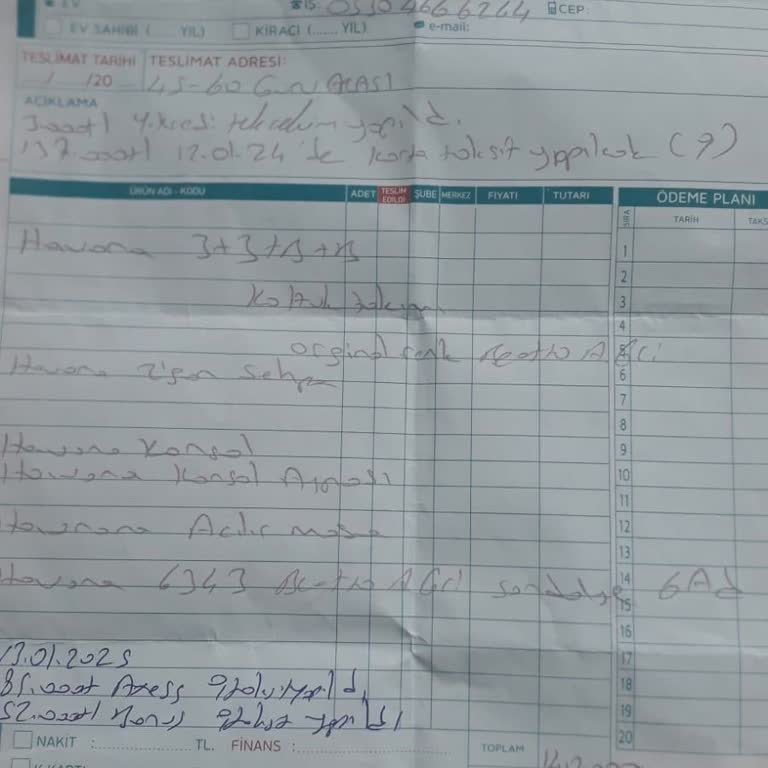 EV İŞ: 0530 466 6264 CEP:
EV SAHİBİ ( YIL) KİRACI (...... YIL) e-mail:
TESLİMAT TARİHİ TESLİMAT ADRESİ:
/ /20 45-60 Gün ARASI
AÇIKLAMA
3000tl yapıldı.
137.000tl 12.01.24 'de karta taksit yapılcak (9)
ÜRÜN ADI - KODU ADET TESLİM EDİLDİ ŞUBE MERKEZ FİYATI TUTARI ÖDEME PLANI
SIRA TARİH TAKS
1
Havana 3+3+1+1
2
Koltuk takımı
3
4
orginal renk
5
Havana Zigon Sehpa
6
7
8
Havana Konsol
9
Havana Konsol Aynası
10
11
Havana Açılır masa
12
13
Havana 6343 sandalye 6Ad
14
15
16
13.01.2025
17
85.000tl Axess yapıldı,
18
52.000tl yapıldı
19
20
NAKİT : TL. FİNANS : TOPLAM
K.KARTI